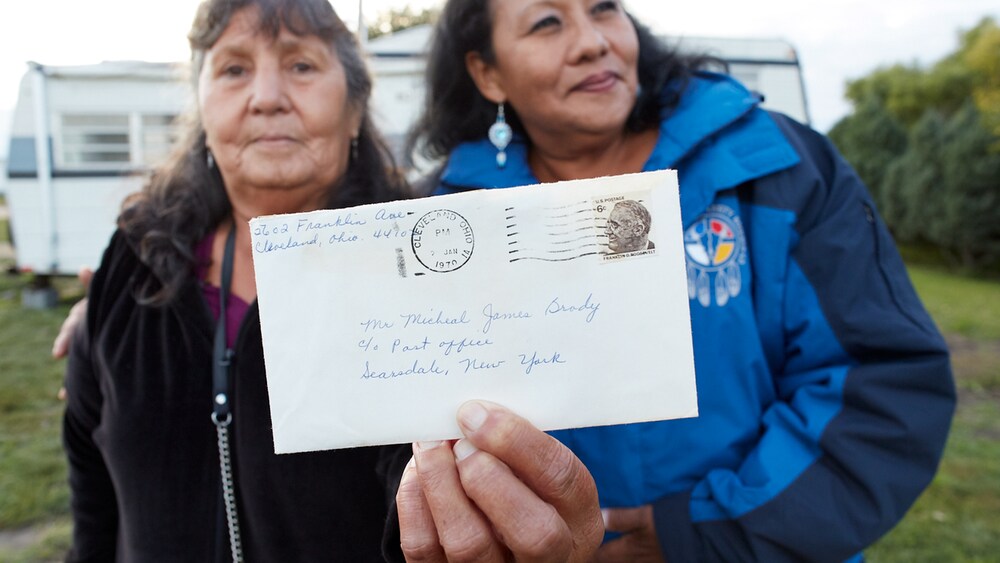 2602 Franklin Ave
Cleveland, Ohio
CLEVELAND, OHIO
PM
JAN
1970
U.S. POSTAGE
6¢
FRANKLIN D. ROOSEVELT
Mr Micheal James Brody
c/o Post office
Scarsdale, New York